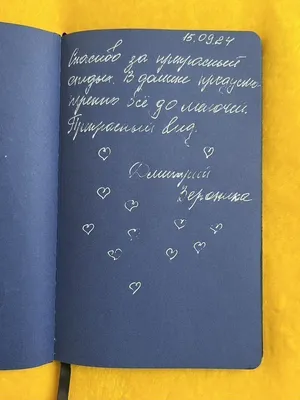 15.09.24
Спасибо за прекрасный
отдых. В домике продума-
нренно всё до мелочей.
Прекрасный вид.
Дмитрий
Вероника